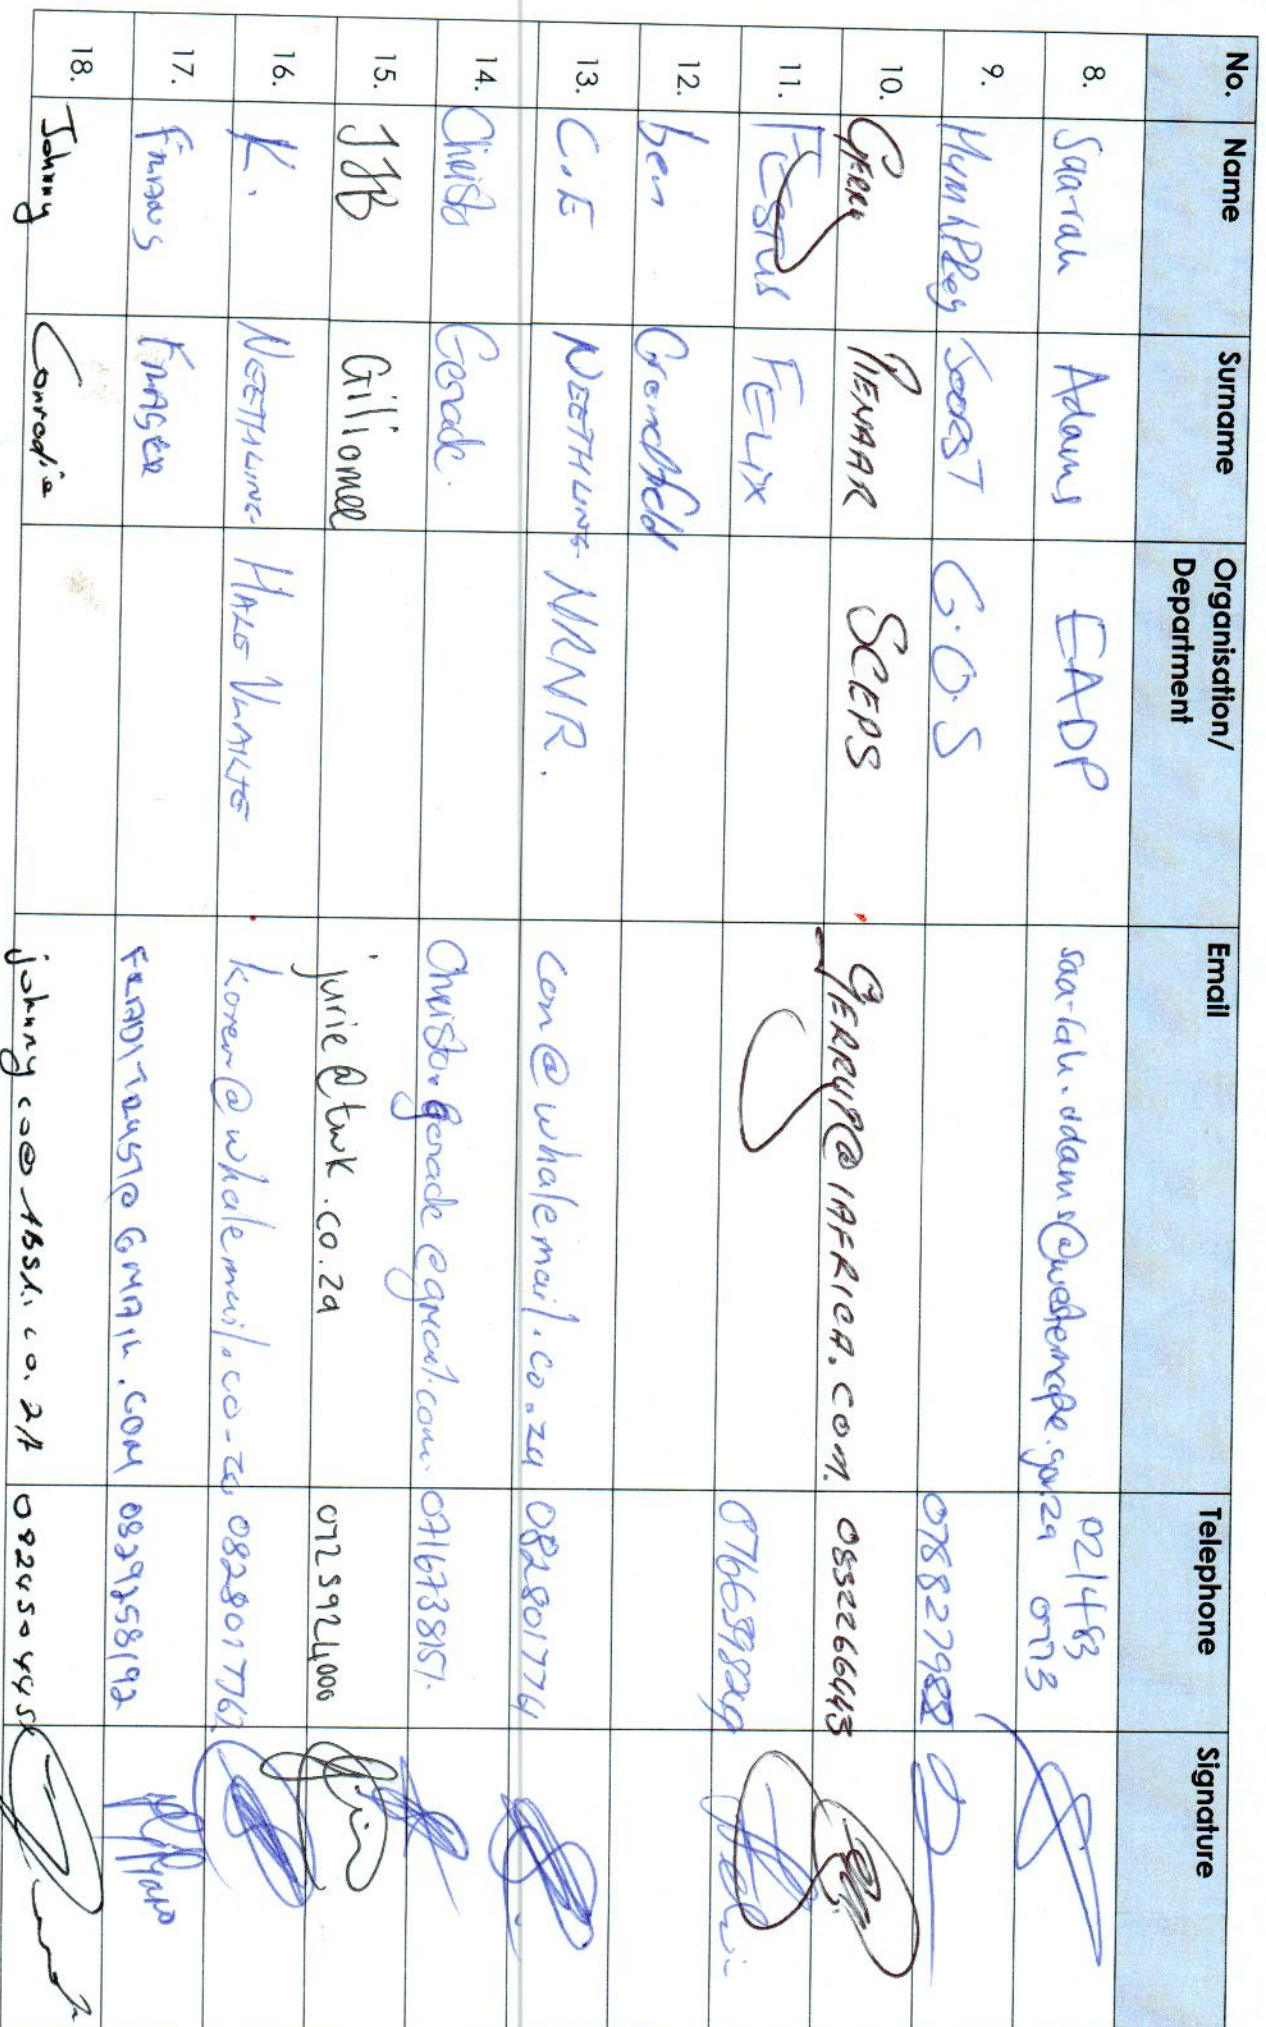 No. Name Surname Organisation/ Department Email Telephone Signature
8. Saa-rah Adams EADP saa-rah.adams@westerncape.gov.za 021 483 0773
9. Humphrey Joorst G.O.S 0788279988
10. Gerry Pienaar SCEPS gerryp@iafrica.com. 0832266443
11. Festus FELIX
12. ben
13. C.E NEETHLING MRNR. con@whalemail.co.za 0828017774
14. Christo Gerade. Christo.Gerade@gmail.com. 0716738151.
15. JJB Giliomee jurie@twk.co.za 0725924000
16. K. NEETHLING koren@whalemail.co.za 0828017762
17. 0829258192
18. Johnny Conradie 0824504451